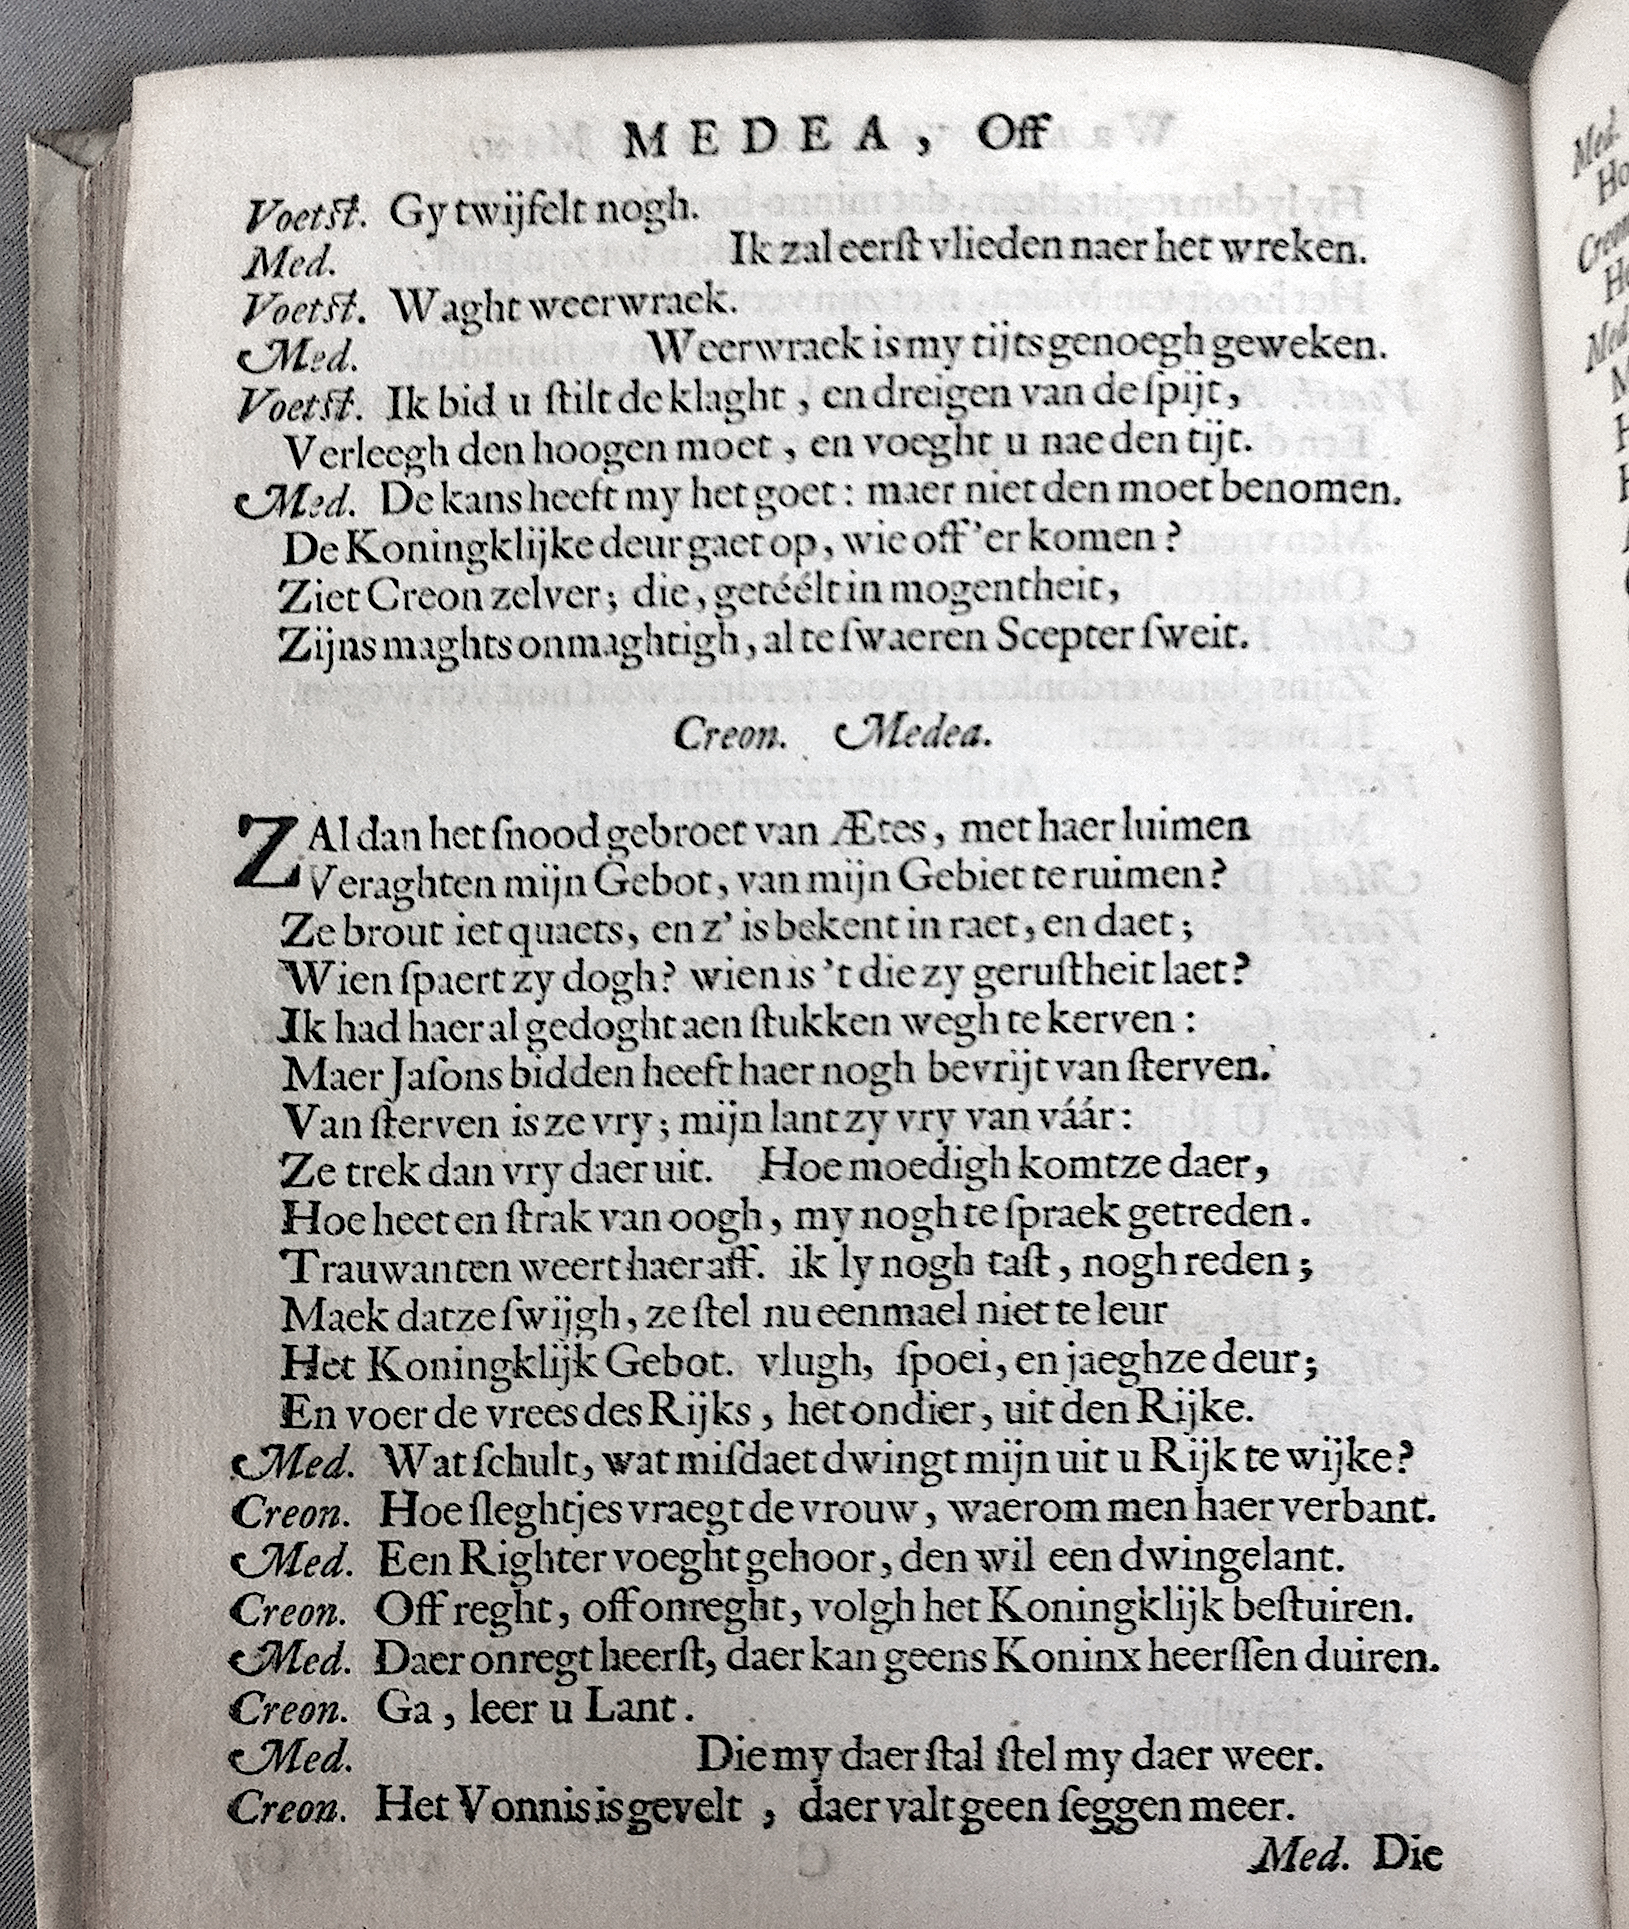 MEDEA, Off
Voetst. Gy twijfelt nogh.
Med. Ik zal eerst vlieden naer het wreken.
Voetst. Waght weerwraek.
Med. Weerwraek is my tijts genoegh geweken.
Voetst. Ik bid u stilt de klaght, en dreigen van de spijt,
Verleegh den hoogen moet, en voeght u nae den tijt.
Med. De kans heeft my het goet: maer niet den moet benomen.
De Koningklijke deur gaet op, wie off'er komen?
Ziet Creon zelver; die, getéélt in mogentheit,
Zijns maghts onmaghtigh, al te swaeren Scepter sweit.
Creon. Medea.
ZAl dan het snood gebroet van Ætes, met haer luimen
Veraghten mijn Gebot, van mijn Gebiet te ruimen?
Ze brout iet quaets, en z' is bekent in raet, en daet;
Wien spaert zy dogh? wien is 't die zy gerustheit laet?
Ik had haer al gedoght aen stukken wegh te kerven:
Maer Jasons bidden heeft haer nogh bevrijt van sterven.
Van sterven is ze vry; mijn lant zy vry van váár:
Ze trek dan vry daer uit. Hoe moedigh komtze daer,
Hoe heet en strak van oogh, my nogh te spraek getreden.
Trauwanten weert haer aff. ik ly nogh tast, nogh reden;
Maek datze swijgh, ze stel nu eenmael niet te leur
Het Koningklijk Gebot. vlugh, spoei, en jaeghze deur;
En voer de vrees des Rijks, het ondier, uit den Rijke.
Med. Wat schult, wat misdaet dwingt mijn uit u Rijk te wijke?
Creon. Hoe sleghtjes vraegt de vrouw, waerom men haer verbant.
Med. Een Righter voeght gehoor, den wil een dwingelant.
Creon. Off reght, off onreght, volgh het Koningklijk bestuiren.
Med. Daer onregt heerst, daer kan geens Koninx heerssen duiren.
Creon. Ga, leer u Lant.
Med. Die my daer stal stel my daer weer.
Creon. Het Vonnis is gevelt, daer valt geen seggen meer.
Med. Die